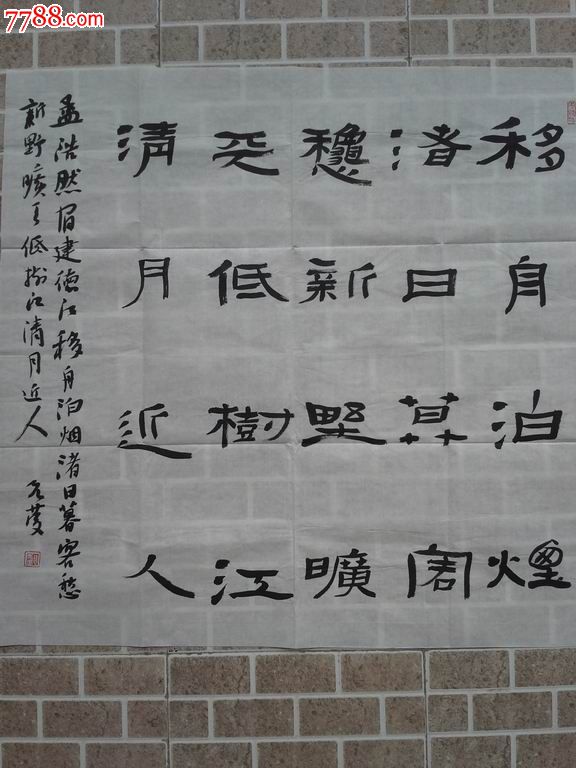 7788.com
移舟泊煙
渚日暮客
愁新野曠
天低樹江
清月近人
孟浩然宿建德江移舟泊烟渚日暮客愁
新野曠天低樹江清月近人